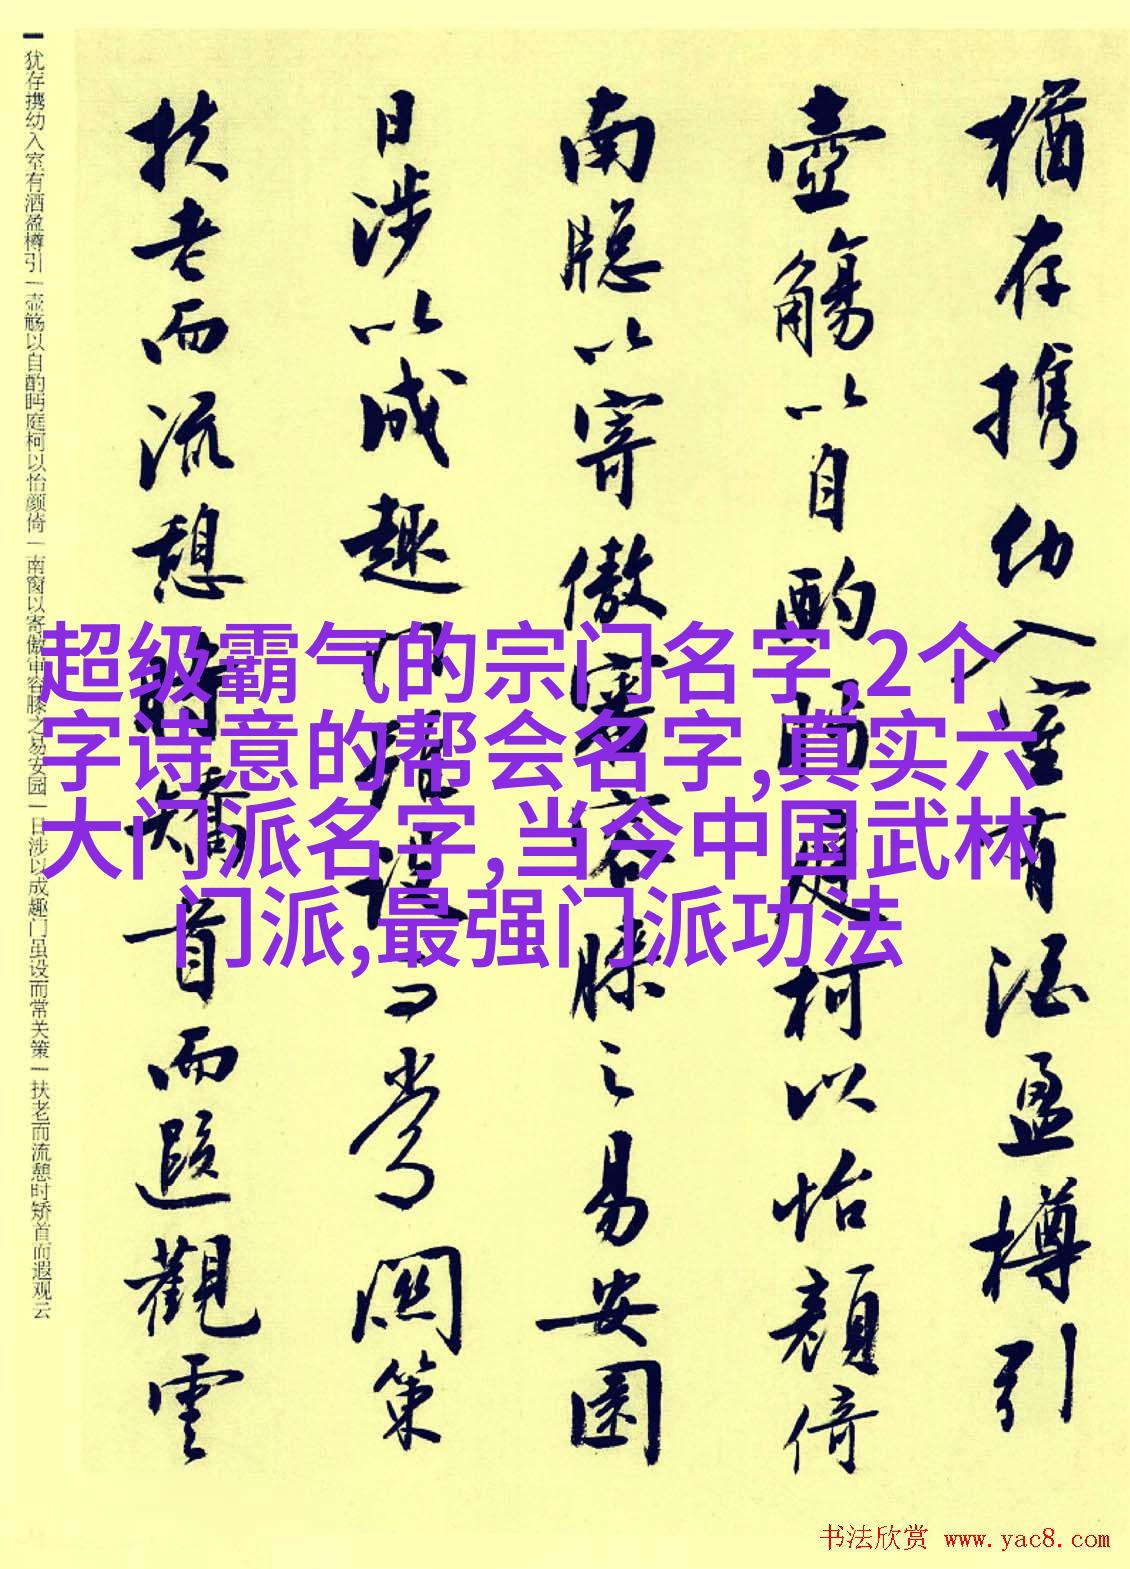 猶存携幼入室有酒盈樽引
壺觴以自酌眄庭柯以怡顔倚
南窓以寄傲審容膝之易安園
日涉以成趣門雖設而常関策
扶老而流憩時矯首而遐觀雲
犹存携幼入室有酒盈樽引|壶觞以自酌眄庭柯以怡颜倚|南窗以寄傲审容膝之易安园|日涉以成趣门虽设而常关策|扶老而流憩时矫首而遐观云
超级霸气的宗门名字,2个
字诗意的帮会名字,真实六
大门派名字,当今中国武林
门派,最强门派功法
书法欣赏 www.yac8.com